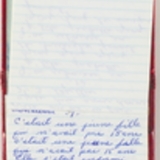 C'était une jeune fille
qui n'avait pas 15 ans
C'était une jeune fille
qui n'avait pas 15 ans
Elle s'était